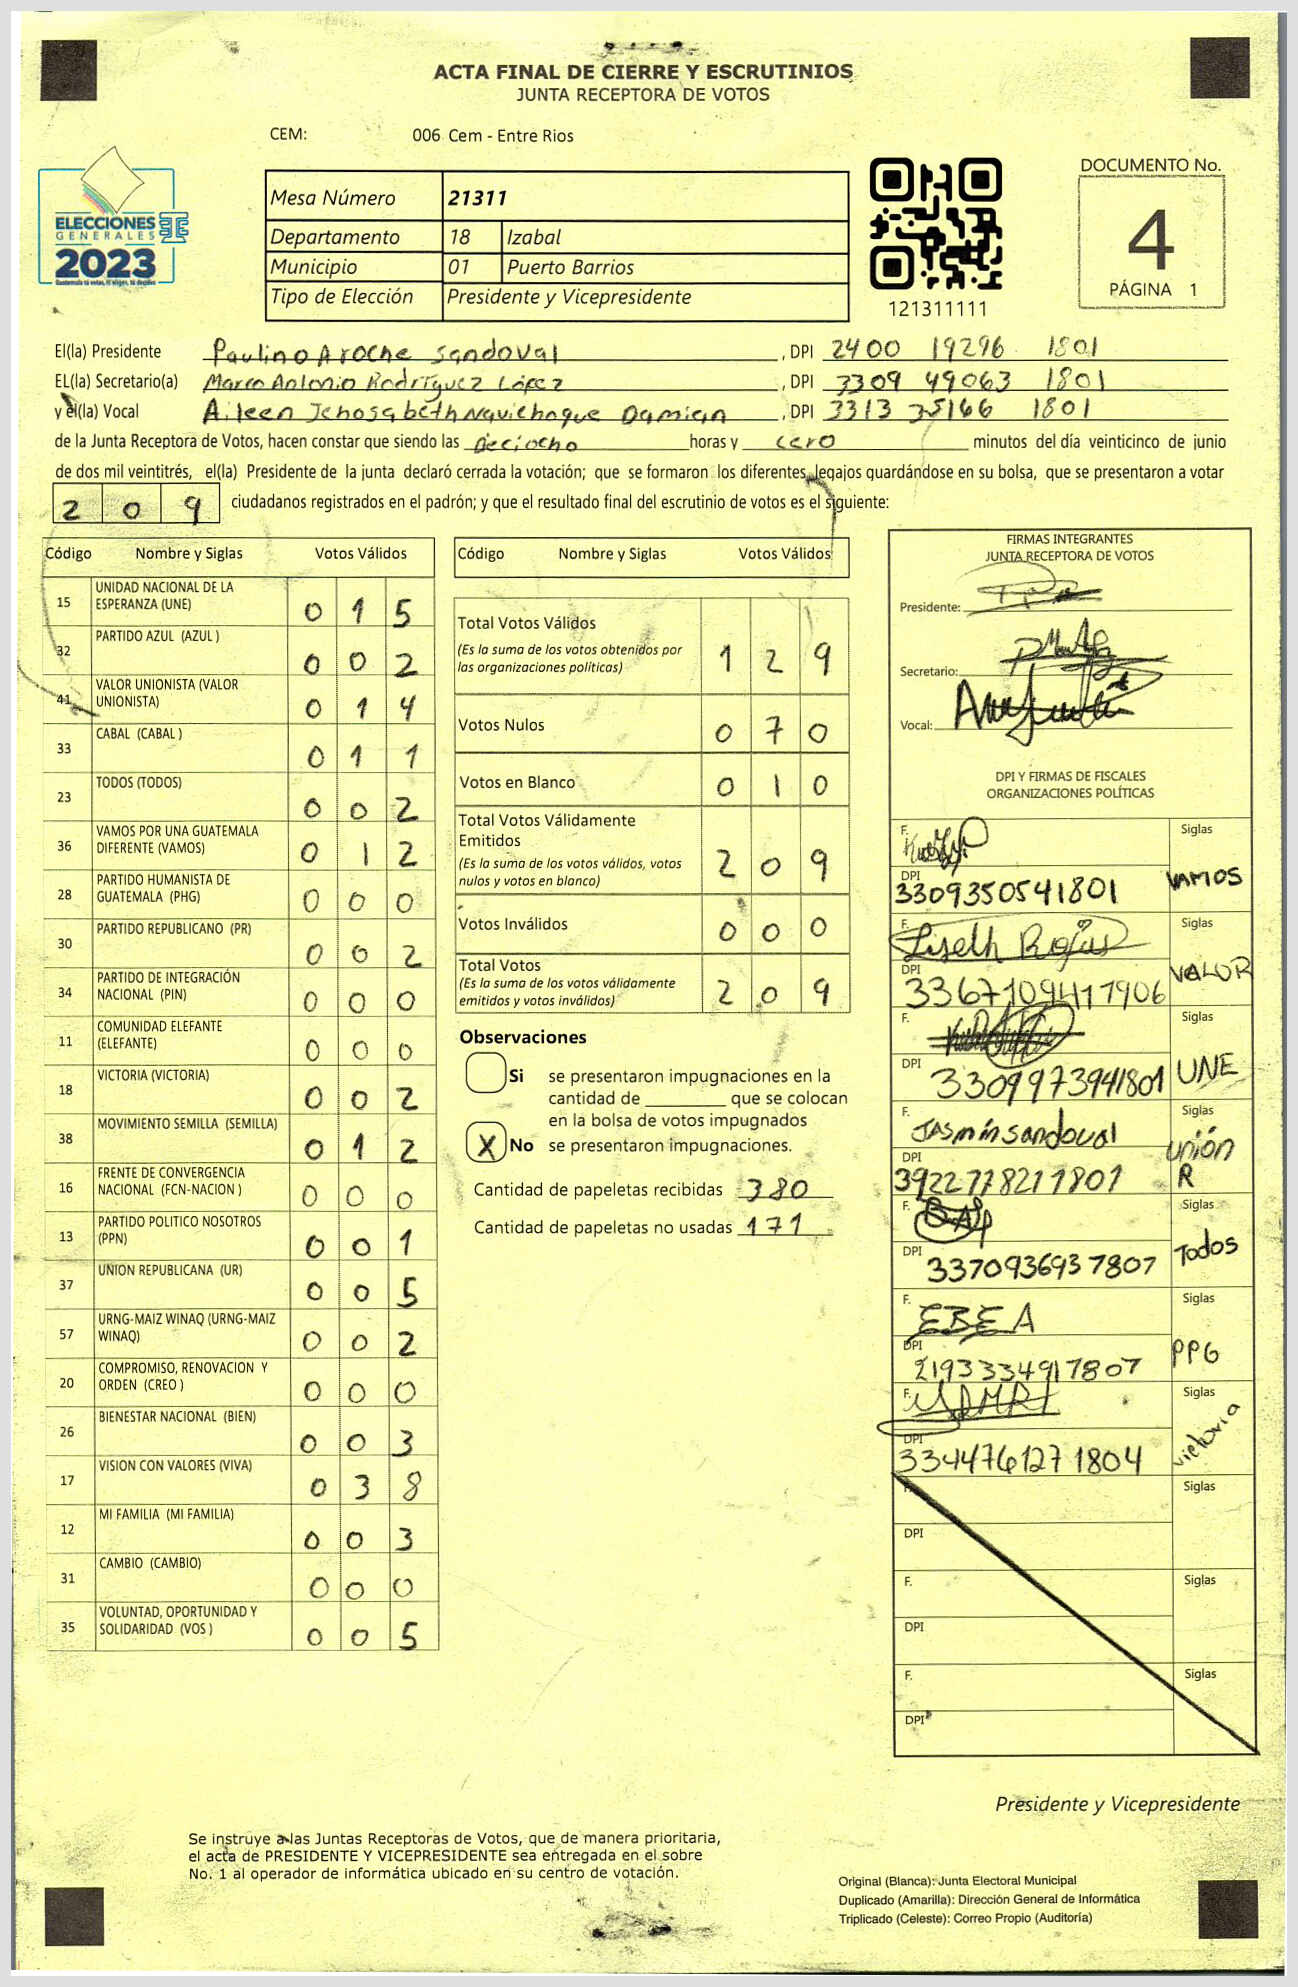 ACTA FINAL DE CIERRE Y ESCRUTINIOS
JUNTA RECEPTORA DE VOTOS
CEM: 006 Cem - Entre Rios
ELECCIONES
GENERALES
2023
Guatemala tú votas, tú eliges, tú decides
Mesa Número 21311
Departamento 18 Izabal
Municipio 01 Puerto Barrios
Tipo de Elección Presidente y Vicepresidente
121311111
DOCUMENTO No.
4
PÁGINA 1
El(la) Presidente Paulino Aroche Sandoval , DPI 2400 19296 1801
EL(la) Secretario(a) Marco Antonio Rodríguez López , DPI 3309 49063 1801
y el(la) Vocal Aileen Jehosabeth Damian , DPI 3313 35166 1801
de la Junta Receptora de Votos, hacen constar que siendo las Deciocho horas y cero minutos del día veinticinco de junio
de dos mil veintitrés, el(la) Presidente de la junta declaró cerrada la votación; que se formaron los diferentes legajos guardándose en su bolsa, que se presentaron a votar
209 ciudadanos registrados en el padrón; y que el resultado final del escrutinio de votos es el siguiente:
Código Nombre y Siglas Votos Válidos
15 UNIDAD NACIONAL DE LA ESPERANZA (UNE) 015
32 PARTIDO AZUL (AZUL ) 002
41 VALOR UNIONISTA (VALOR UNIONISTA) 014
33 CABAL (CABAL ) 011
23 TODOS (TODOS) 002
36 VAMOS POR UNA GUATEMALA DIFERENTE (VAMOS) 012
28 PARTIDO HUMANISTA DE GUATEMALA (PHG) 000
30 PARTIDO REPUBLICANO (PR) 002
34 PARTIDO DE INTEGRACIÓN NACIONAL (PIN) 000
11 COMUNIDAD ELEFANTE (ELEFANTE) 000
18 VICTORIA (VICTORIA) 002
38 MOVIMIENTO SEMILLA (SEMILLA) 012
16 FRENTE DE CONVERGENCIA NACIONAL (FCN-NACION ) 000
13 PARTIDO POLITICO NOSOTROS (PPN) 001
37 UNION REPUBLICANA (UR) 005
57 URNG-MAIZ WINAQ (URNG-MAIZ WINAQ) 002
20 COMPROMISO, RENOVACION Y ORDEN (CREO ) 000
26 BIENESTAR NACIONAL (BIEN) 003
17 VISION CON VALORES (VIVA) 038
12 MI FAMILIA (MI FAMILIA) 003
31 CAMBIO (CAMBIO) 000
35 VOLUNTAD, OPORTUNIDAD Y SOLIDARIDAD (VOS ) 005
Código Nombre y Siglas Votos Válidos
Total Votos Válidos 129
(Es la suma de los votos obtenidos por
las organizaciones políticas)
Votos Nulos 070
Votos en Blanco 010
Total Votos Válidamente
Emitidos 209
(Es la suma de los votos válidos, votos
nulos y votos en blanco)
Votos Inválidos 000
Total Votos 209
(Es la suma de los votos válidamente
emitidos y votos inválidos)
Observaciones
Si se presentaron impugnaciones en la
cantidad de ________ que se colocan
en la bolsa de votos impugnados
X No se presentaron impugnaciones.
Cantidad de papeletas recibidas 380
Cantidad de papeletas no usadas 171
FIRMAS INTEGRANTES
JUNTA RECEPTORA DE VOTOS
Presidente:
Secretario:
Vocal:
DPI Y FIRMAS DE FISCALES
ORGANIZACIONES POLÍTICAS
F. Siglas
DPI 3309350541801 VAMOS
F. Liseth Rojas Siglas
DPI 3367109411906 VALOR
F. Siglas
DPI 3309973941801 UNE
F. Jasmín sandoval Siglas
DPI 3922778211801 unión R
F. Siglas
DPI 3370936937807 Todos
F. EBEA Siglas
DPI 2193334917807 PPG
F. Siglas
DPI 3344761271804 victoria
F. Siglas
DPI
F. Siglas
DPI
F. Siglas
DPI
Presidente y Vicepresidente
Se instruye a las Juntas Receptoras de Votos, que de manera prioritaria,
el acta de PRESIDENTE Y VICEPRESIDENTE sea entregada en el sobre
No. 1 al operador de informática ubicado en su centro de votación.
Original (Blanca): Junta Electoral Municipal
Duplicado (Amarilla): Dirección General de Informática
Triplicado (Celeste): Correo Propio (Auditoría)